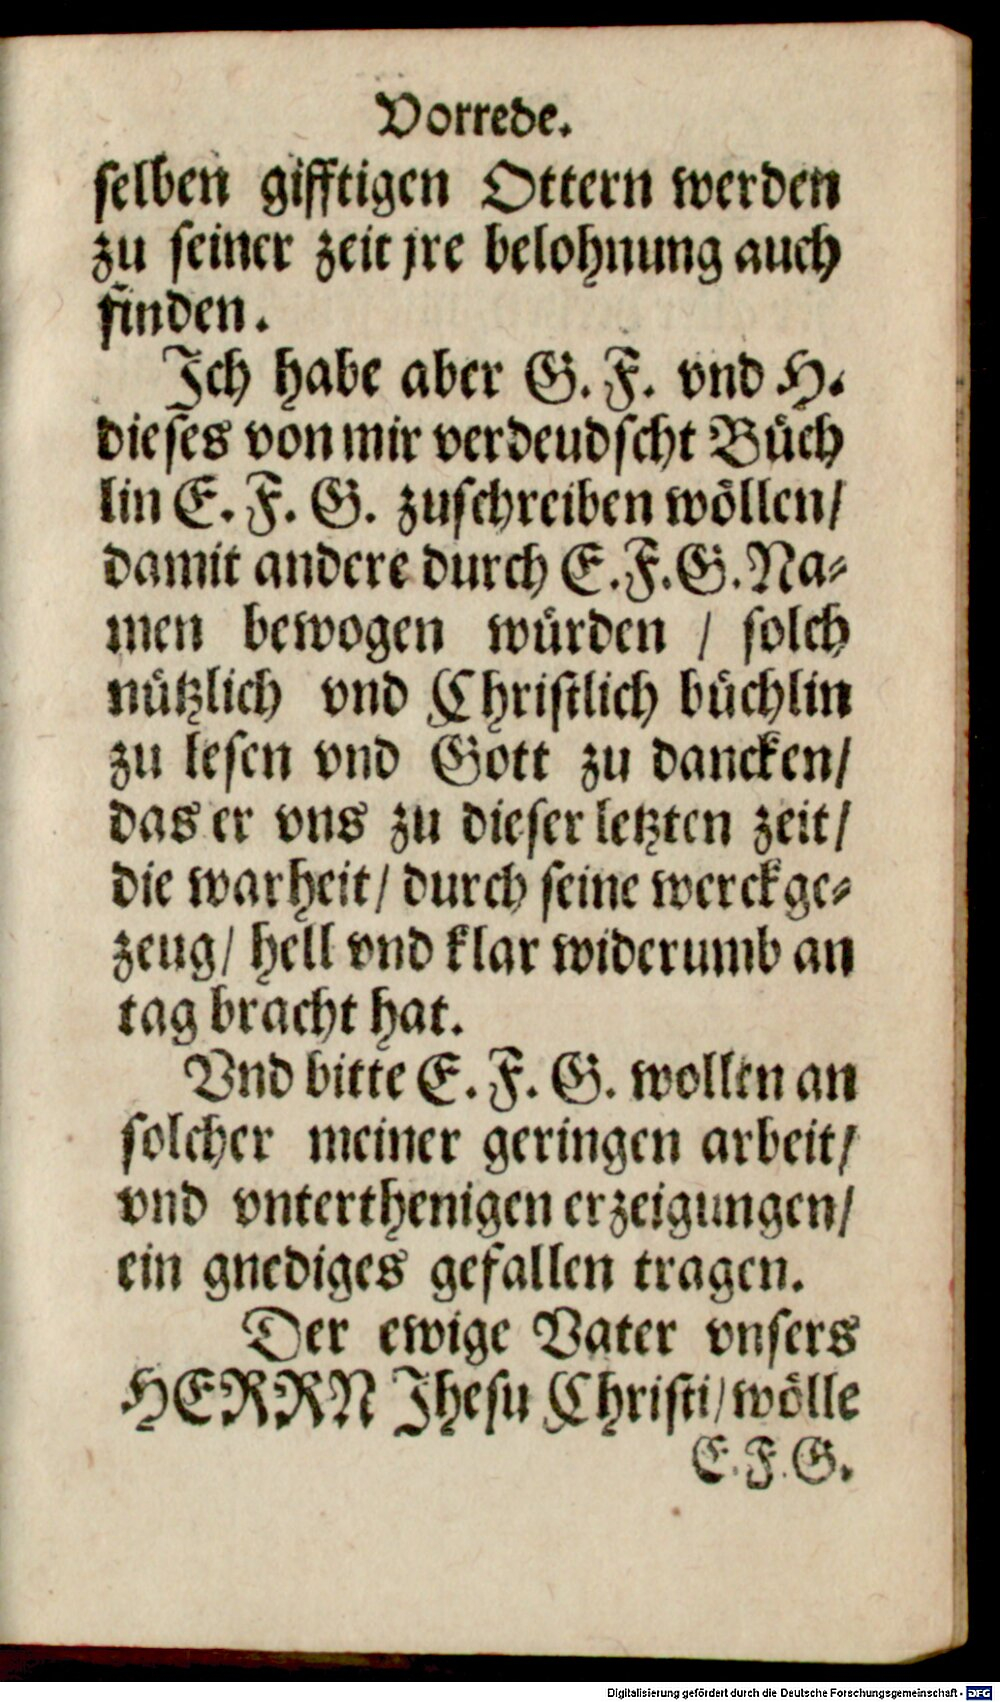 Vorrede.
selben gifftigen Ottern werden
zu seiner zeit jre belohnung auch
finden.
Ich habe aber G. F. vnd H.
dieses von mir verdeudscht Büch
lin E. F. G. zuschreiben wöllen/
damit andere durch E. F. G. Na-
men bewogen würden / solch
nützlich vnd Christlich büchlin
zu lesen vnd Gott zu dancken/
das er vns zu dieser letzten zeit/
die warheit/ durch seine werckge-
zeug/ hell vnd klar widerumb an
tag bracht hat.
Vnd bitte E. F. G. wollen an
solcher meiner geringen arbeit/
vnd vnterthenigen erzeigungen/
ein gnediges gefallen tragen.
Der ewige Vater vnsers
HERRN Jhesu Christi/ wölle
E. F. G.
Digitalisierung gefördert durch die Deutsche Forschungsgemeinschaft - DFG